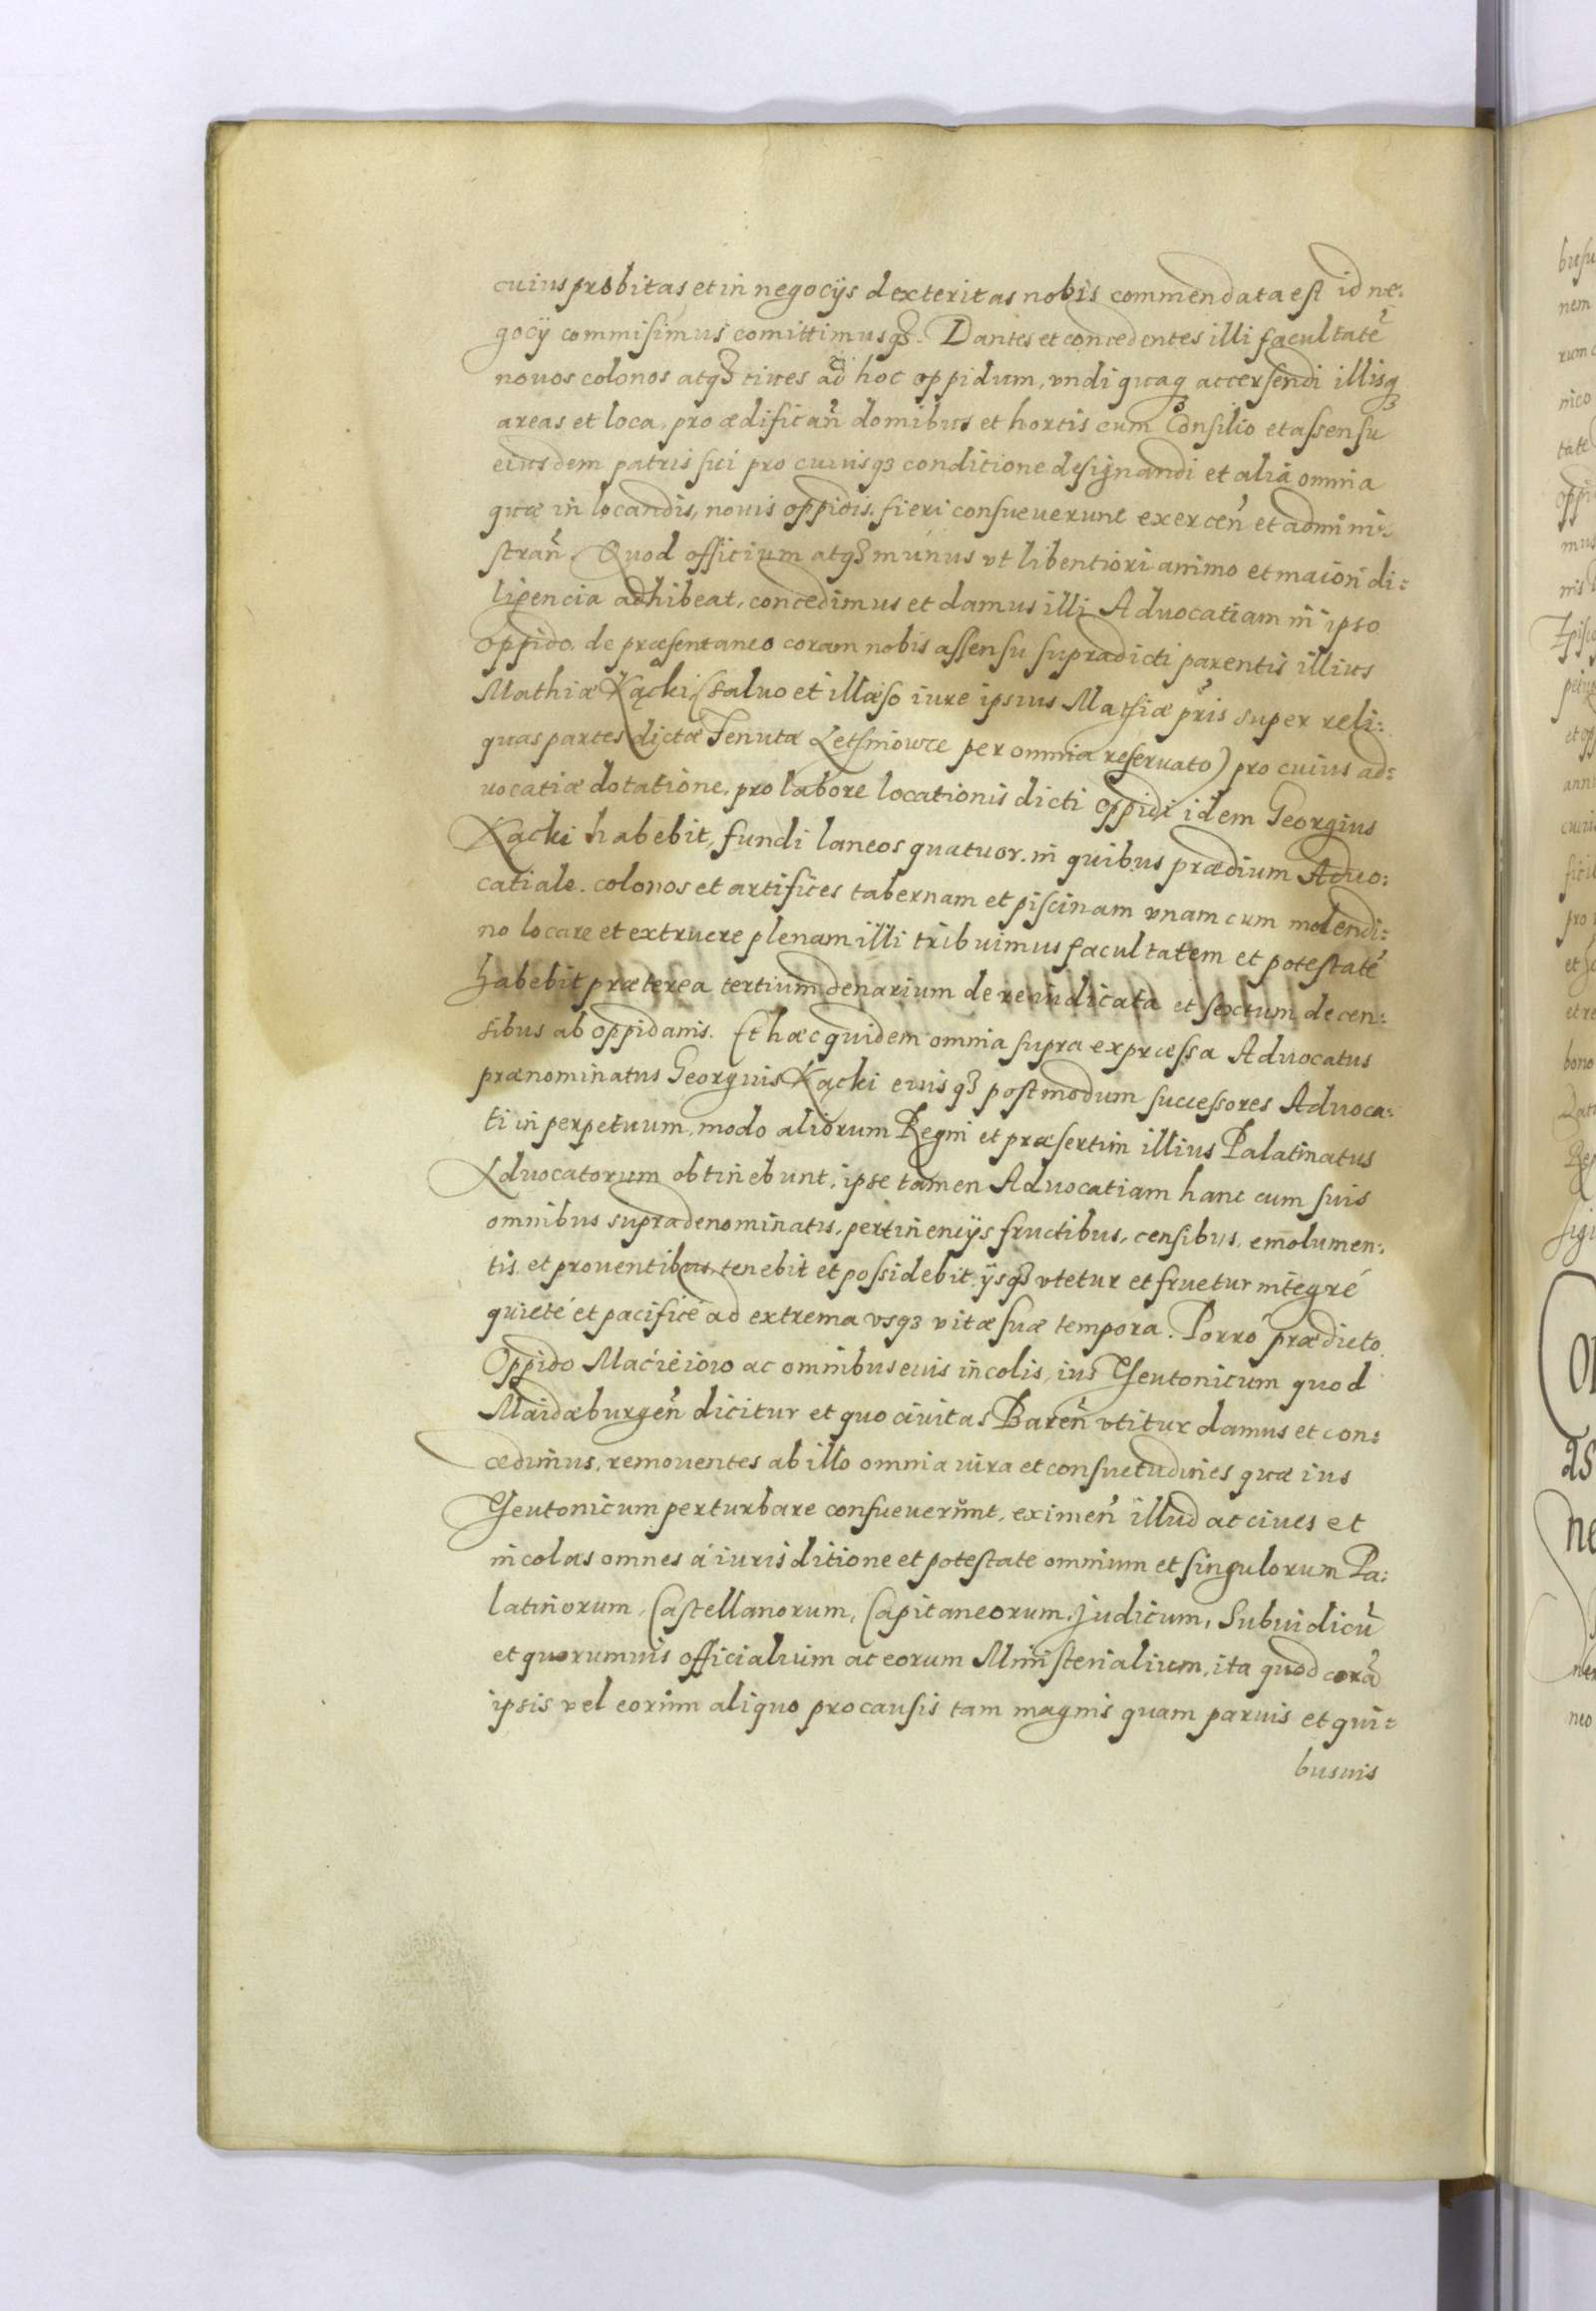 cuius probitas et in negocÿs dexteritas nobis commendata est id ne:
gocÿ commisimus comittimusq3. Dantes et concedentes illi facultatẽ
nouos colonos atq3 ciues ad hoc oppidum, vndiquaq3 accersendi illisq3
areas et loca, pro ædificañ domibus et hortis cum Consilio et assensu
eiusdem patris sui pro cuiusq3 conditione designandi et alia omnia
quæ in locandis, nouis oppidis. fieri consueuerunt exerceñ et admini:
strañ. Quod officium atq3 munus vt libentiori animo et maiori di:
ligencia adhibeat, concedimus et damus illi Aduocatiam in ipso
oppido. de præsentaneo coram nobis assensu supradicti parentis illius
Mathiæ Kącki, (saluo et illæso iure ipsius Mathiæ pr̃is super reli:
quas partes dictæ Tenutæ Letsniowce per omnia reseruato) pro cuius ad:
uocatiæ dotatione, pro labore locationis dicti oppidi idem Georgius
Kącki habebit, fundi laneos quatuor. in quibus prædium Aduo:
catiale. colonos et artifices tabernam et piscinam vnam cum molendi:
no locare et extruere plenam illi tribuimus facultatem et potestatẽ
habebit præterea tertium denarium de re iudicata et sextum de cen:
sibus ab oppidanis. Et hæc quidem omnia supra expressa Aduocatus
prænominatus Georgius Kącki eiusq3 postmodum successores Aduoca:
ti in perpetuum, modo aliorum Regni et præsertim illius Palatinatus
Aduocatorum obtinebunt, ipse tamen Aduocatiam hanc cum suis
omnibus supradenominatis, pertinencÿs fructibus, censibus, emolumen:
tis et prouentibus, tenebit et possidebit ÿsq3 vtetur et fruetur integré
quieté et pacificé ad extrema vsq3 vitæ suæ tempora. Porró prædicto
Oppido Macieiow ac omnibus euis incolis, ius Theutonicum quod
Maidæburgeñ dicitur et quo ciuitas Bareñ vtitur damus et con:
cedimus, remouentes ab illo omnia iura et consuetudines quæ ius
Theutonicum perturbare consueuerunt, eximeñ illud ac ciues et
incolas omnes á iurisditione et potestate omnium et singulorum Pa:
latinorum, Castellanorum, Capitaneorum, Judicum, Subiudicũ
et quorumuis officialium ac eorum Ministerialium, ita quod corã
ipsis vel eorum aliquo pro causis tam magnis quam paruis et qui:
busuis